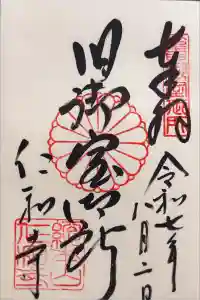 奉拝
令和七年
八月二日
旧御室御所
仁和寺